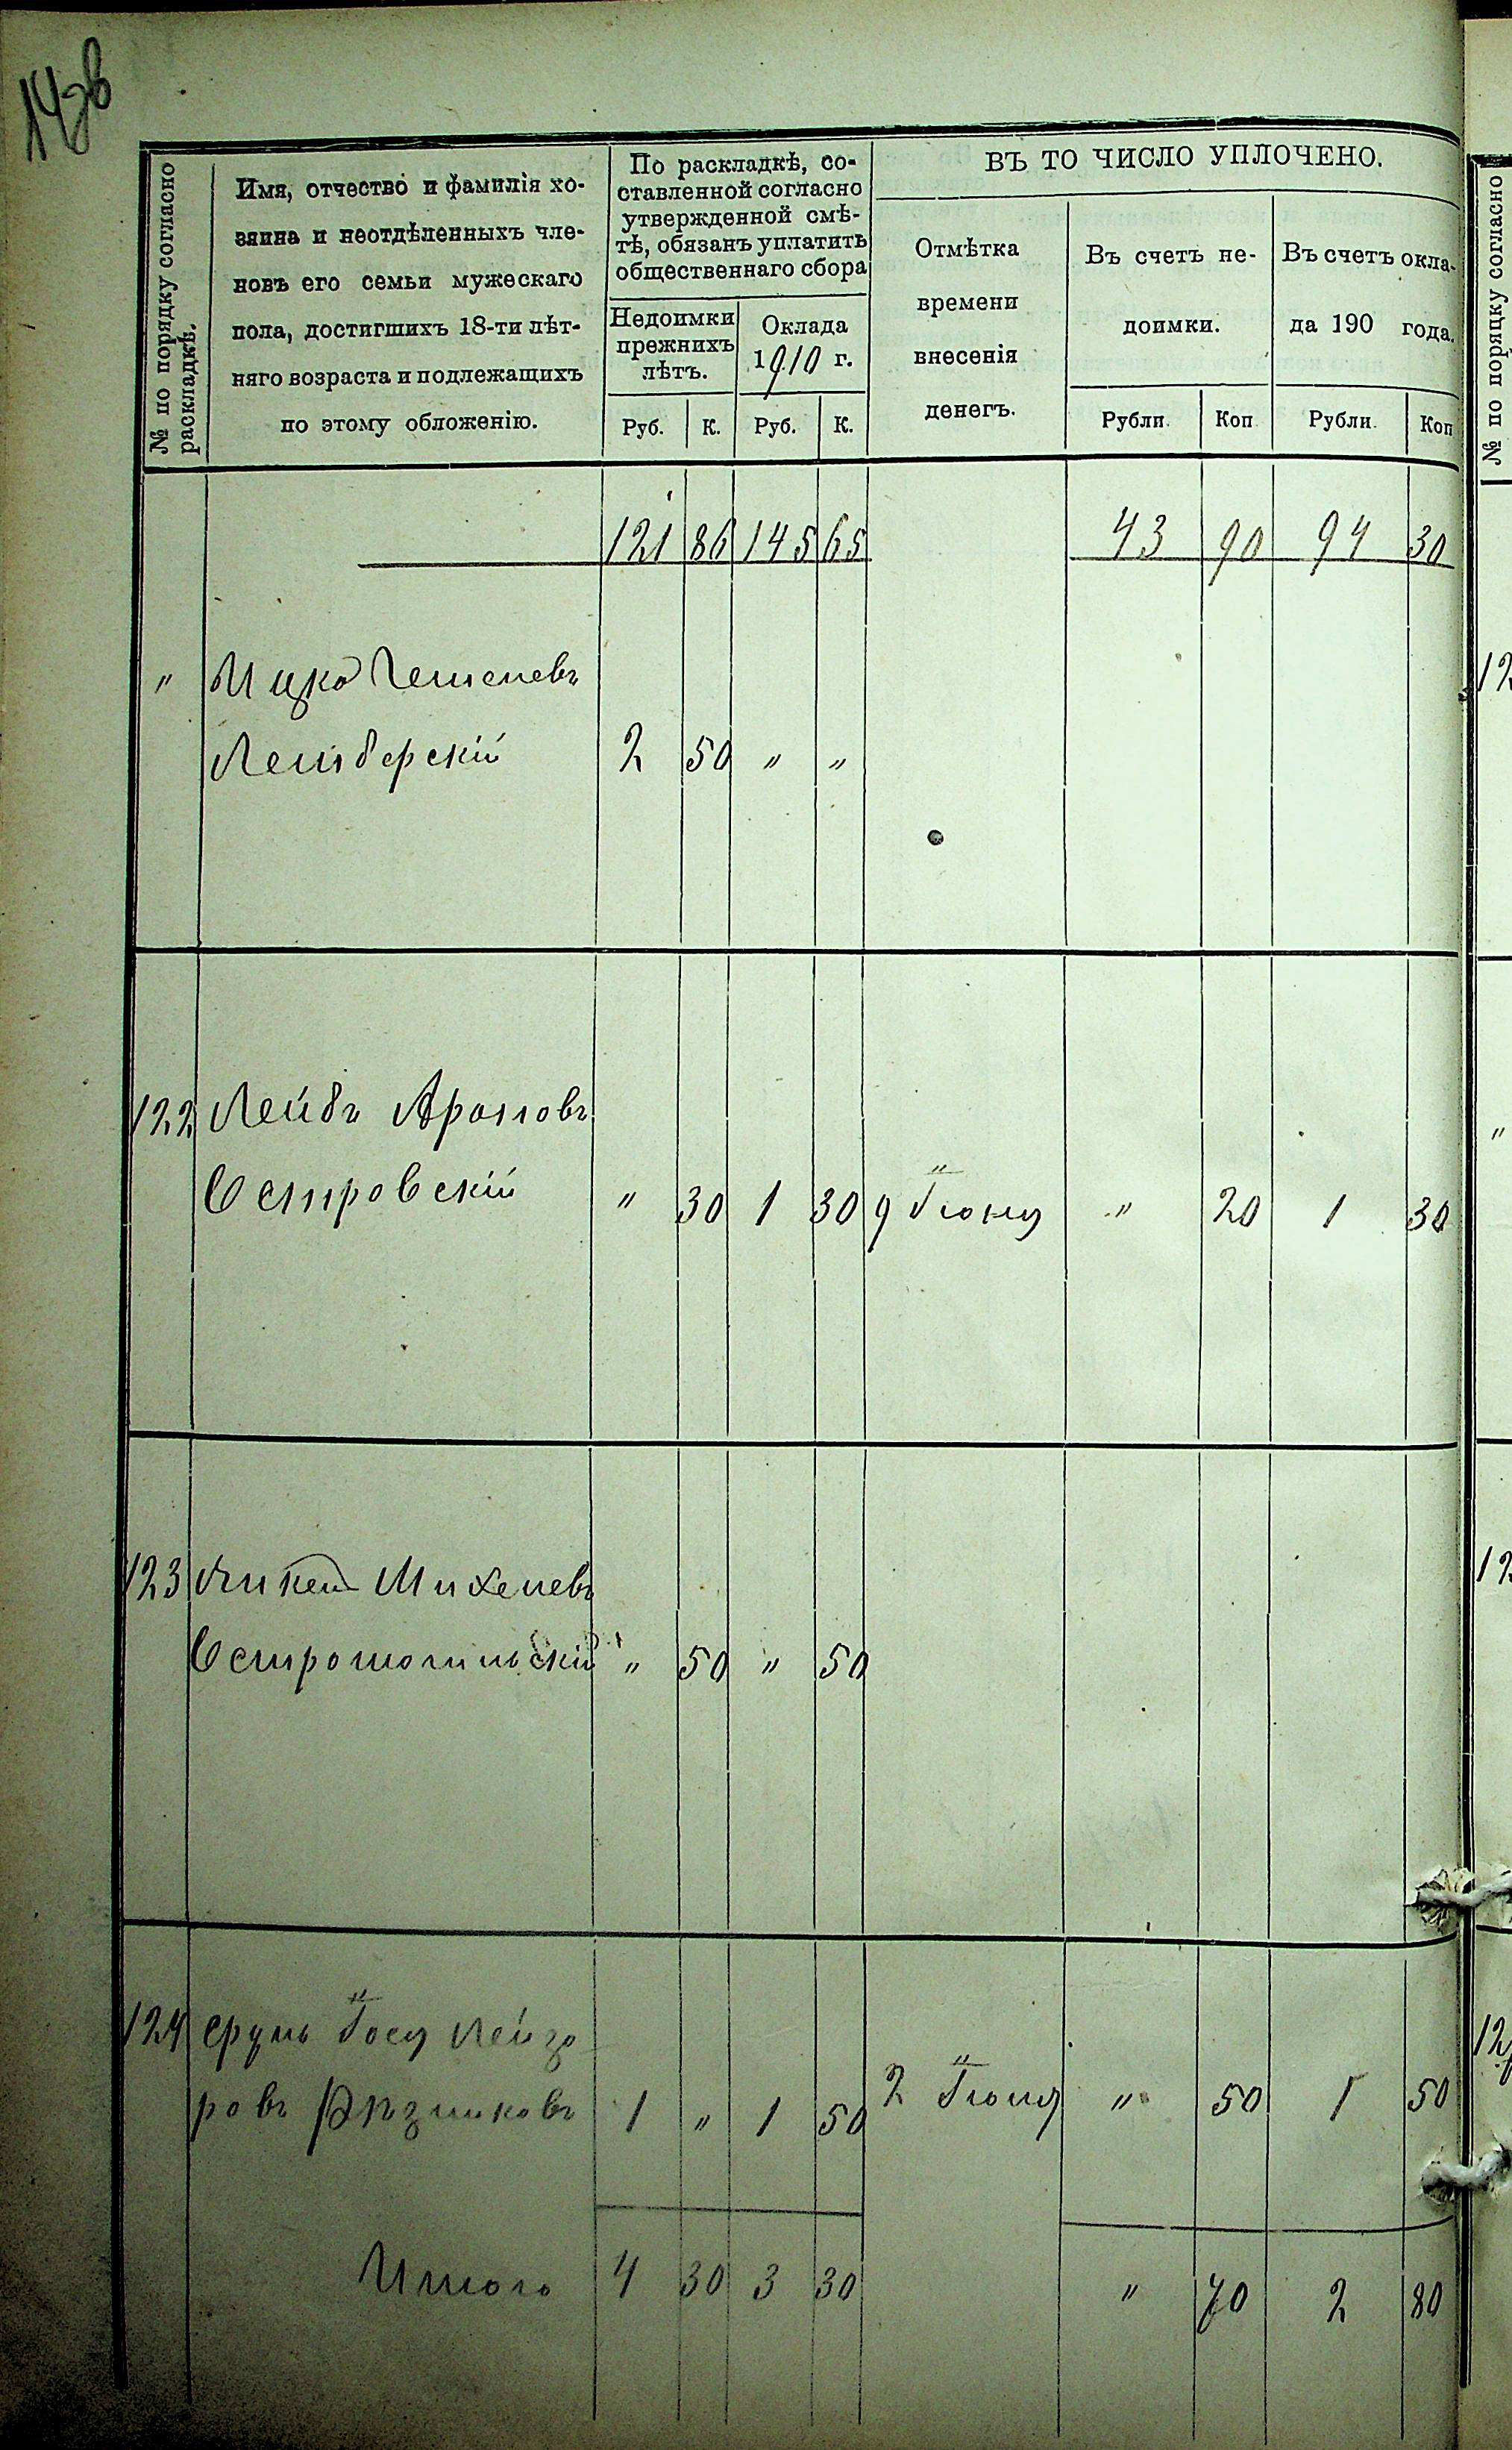 № по порядку согласно раскладкѣ.
Имя, отчество и фамилія хо-
зяина и неотдѣленныхъ чле-
новъ его семьи мужескаго
пола, достигшихъ 18-ти лѣт-
няго возраста и подлежащихъ
по этому обложенію.
По раскладкѣ, со-
ставленной согласно
утвержденной смѣ-
тѣ, обязанъ уплатить
общественнаго сбора
Недоимки
прежнихъ
лѣтъ.
Оклада
1910 г.
Руб. К. Руб. К.
ВЪ ТО ЧИСЛО УПЛОЧЕНО.
Отмѣтка
времени
внесенія
денегъ.
Въ счетъ не-
доимки.
Въ счетъ окла-
да 190 года.
Рубли. Коп. Рубли. Коп
121 86 145 65 43 90 94 30
" Ицко
2 50 " "
122 Лейбъ Ароновъ
Островскій " 30 1 30 9 Іюня " 20 1 30
123 Михелевъ
Остромогильскій " 50 " 50
124 Сруль Іось Лейзо
ровъ Рѣзниковъ 1 " 1 50 2 Іюня " 50 1 50
Итого 4 30 3 30 " 70 2 80
№ по порядку согласно